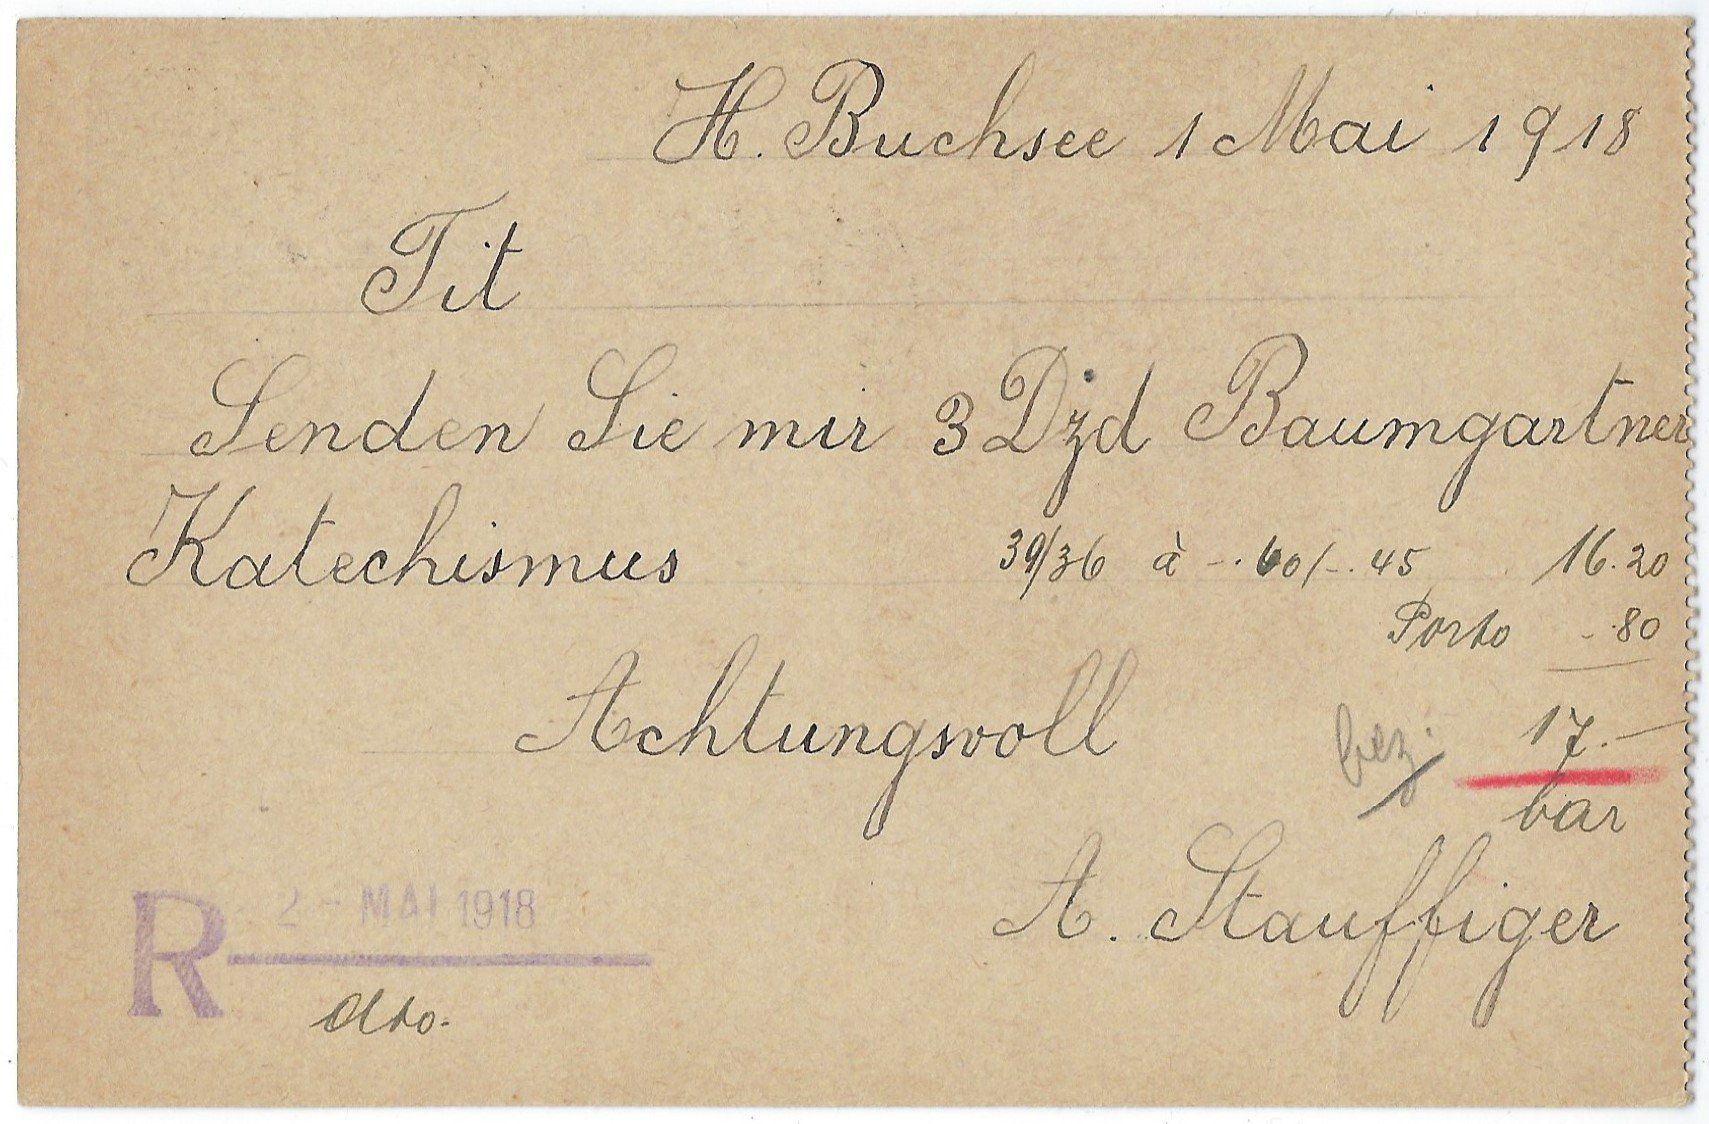 H. Buchsee 1 Mai 1918
Tit
Senden Sie mir 3 Dzd Baumgartner
Katechismus 39/36 à -.60/-.45 16.20
Porto -.80
Achtungsvoll bez. 17.-
bar
A. Stauffiger
R 2 - MAI 1918
dto.